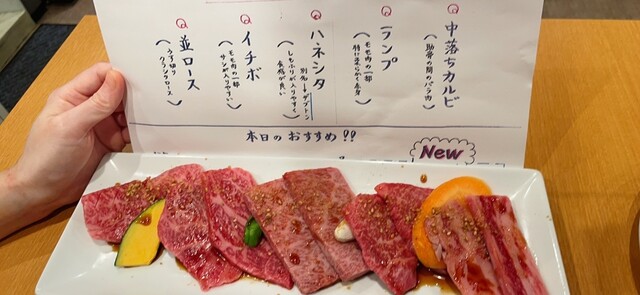 中落ちカルビ
(肋骨の間のバラ肉)
ランプ
(モモ肉の一部
特に柔らかく赤身)
ハネシタ
別名→ザブトン
(しもふりが入りやすく
食感が良い)
イチボ
(モモ肉の一部
サシが入りやすい)
並ロース
(うす切り
クラシタロース)
本日のおすすめ!!
New